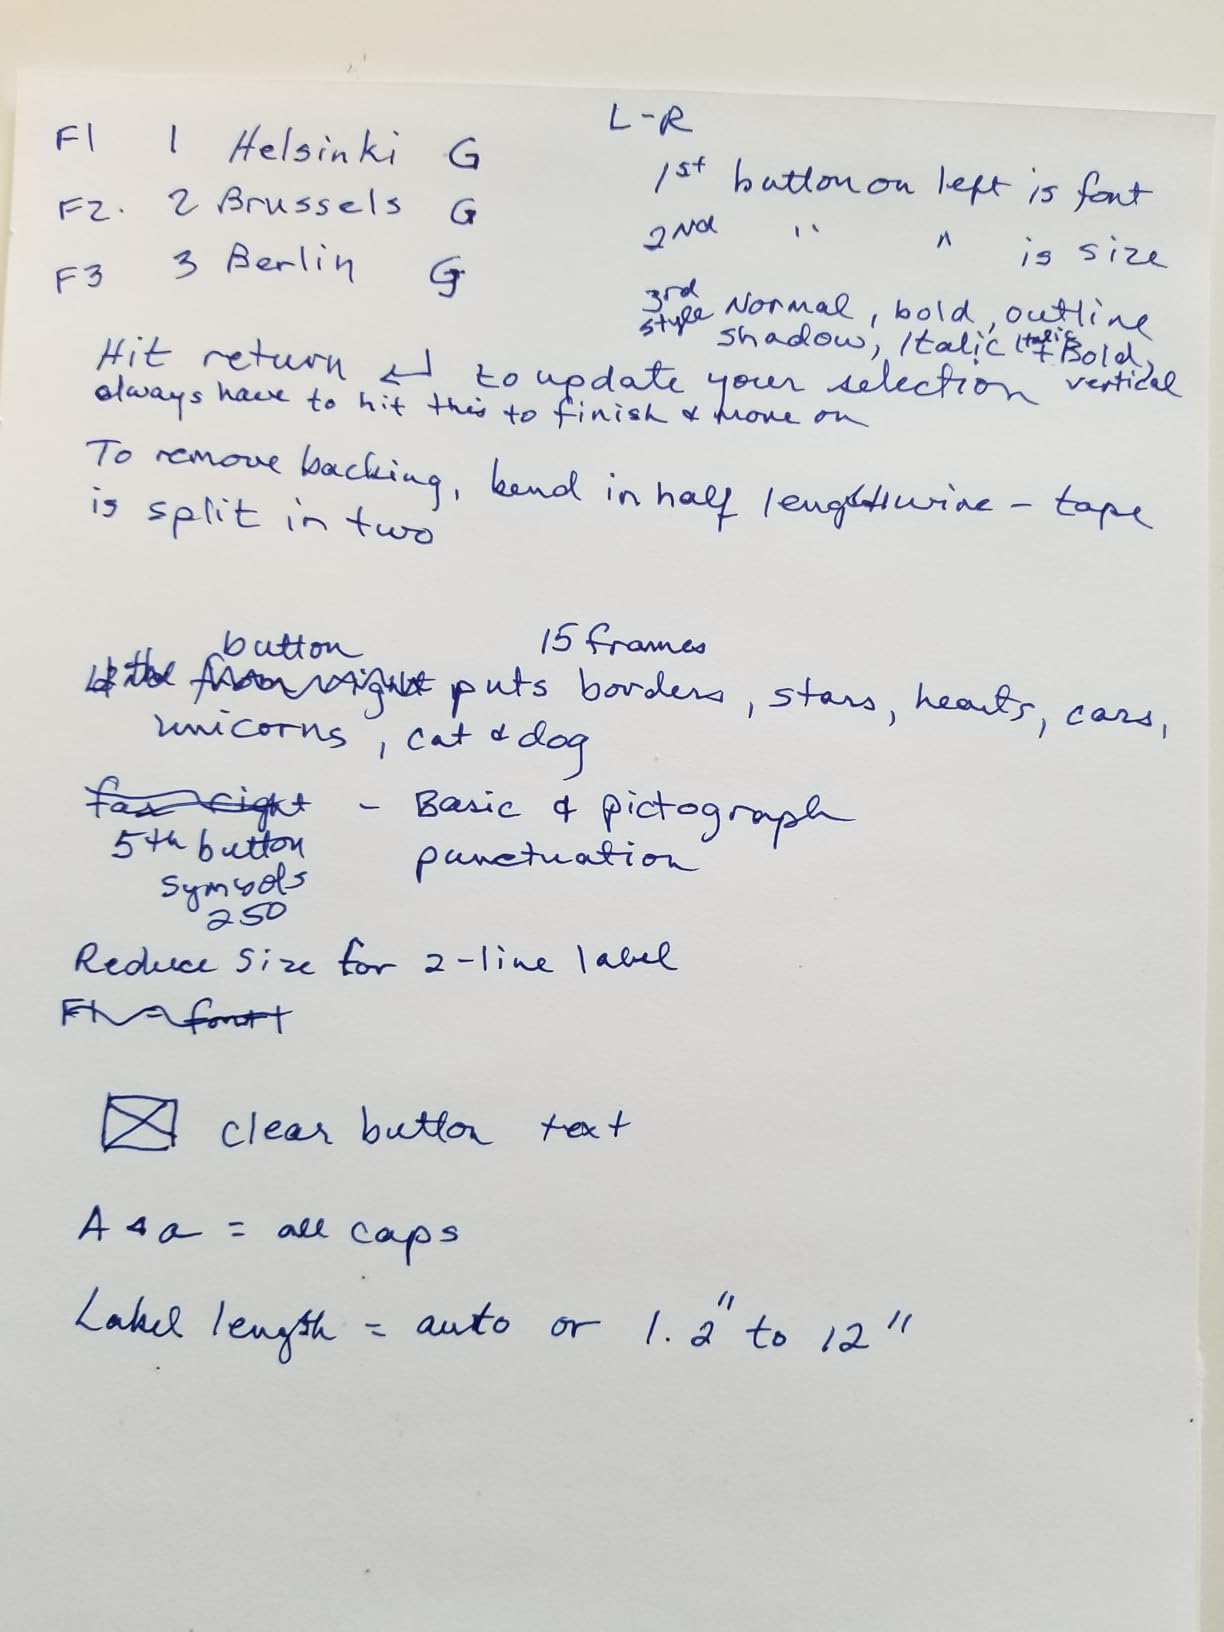 F1 1 Helsinki G
F2. 2 Brussels G
F3 3 Berlin G
L-R
1st button on left is font
2nd " " is size
3rd style Normal, bold, outline
shadow, Italic, Italic + Bold,
vertical
Hit return ↵ to update your selection
always have to hit this to finish & move on
To remove backing, bend in half lengthwise - tape
is split in two
button 15 frames
puts borders, stars, hearts, cars,
unicorns, cat & dog
far right - Basic & pictograph
5th button punctuation
symbols
250
Reduce size for 2-line label
F1 = font
☒ clear button text
A & a = all caps
Label length = auto or 1.2" to 12"